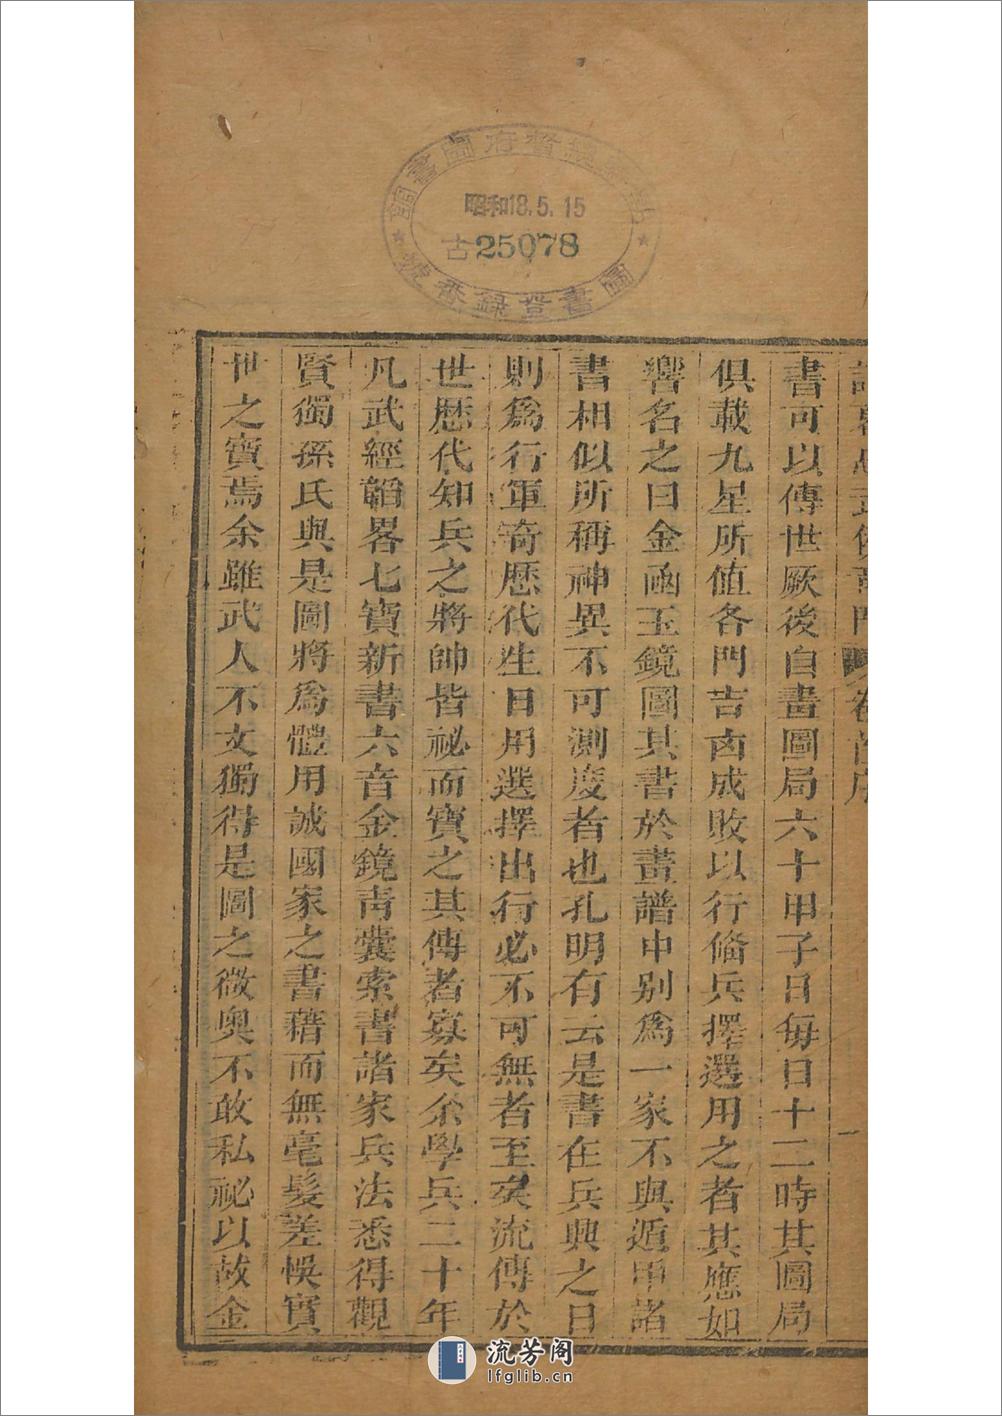 圖書館
昭和18.5.15
古25078
圖書登錄番號
卷首序
一
書可以傳世厥後自畫圖局六十甲子日每日十二時其圖局
俱載九星所值各門吉卤成敗以行偹兵擇選用之者其應如
響名之曰金函玉鏡圖其書於畫譜中別爲一家不與遁甲諸
書相似所稱神異不可測度者也孔明有云是書在兵興之日
則爲行軍竒歷代生日用選擇出行必不可無者至矣流傳於
世歷代知兵之將帥皆祕而寶之其傳者寡矣余學兵二十年
凡武經韜畧七寶新書六音金鏡靑囊索書諸家兵法悉得觀
賢獨孫氏與是圖將爲體用誠國家之書藉而無毫髮差悞實
世之寶焉余雖武人不文獨得是圖之微奧不敢私祕以故金
流芳阁
lfglib.cn